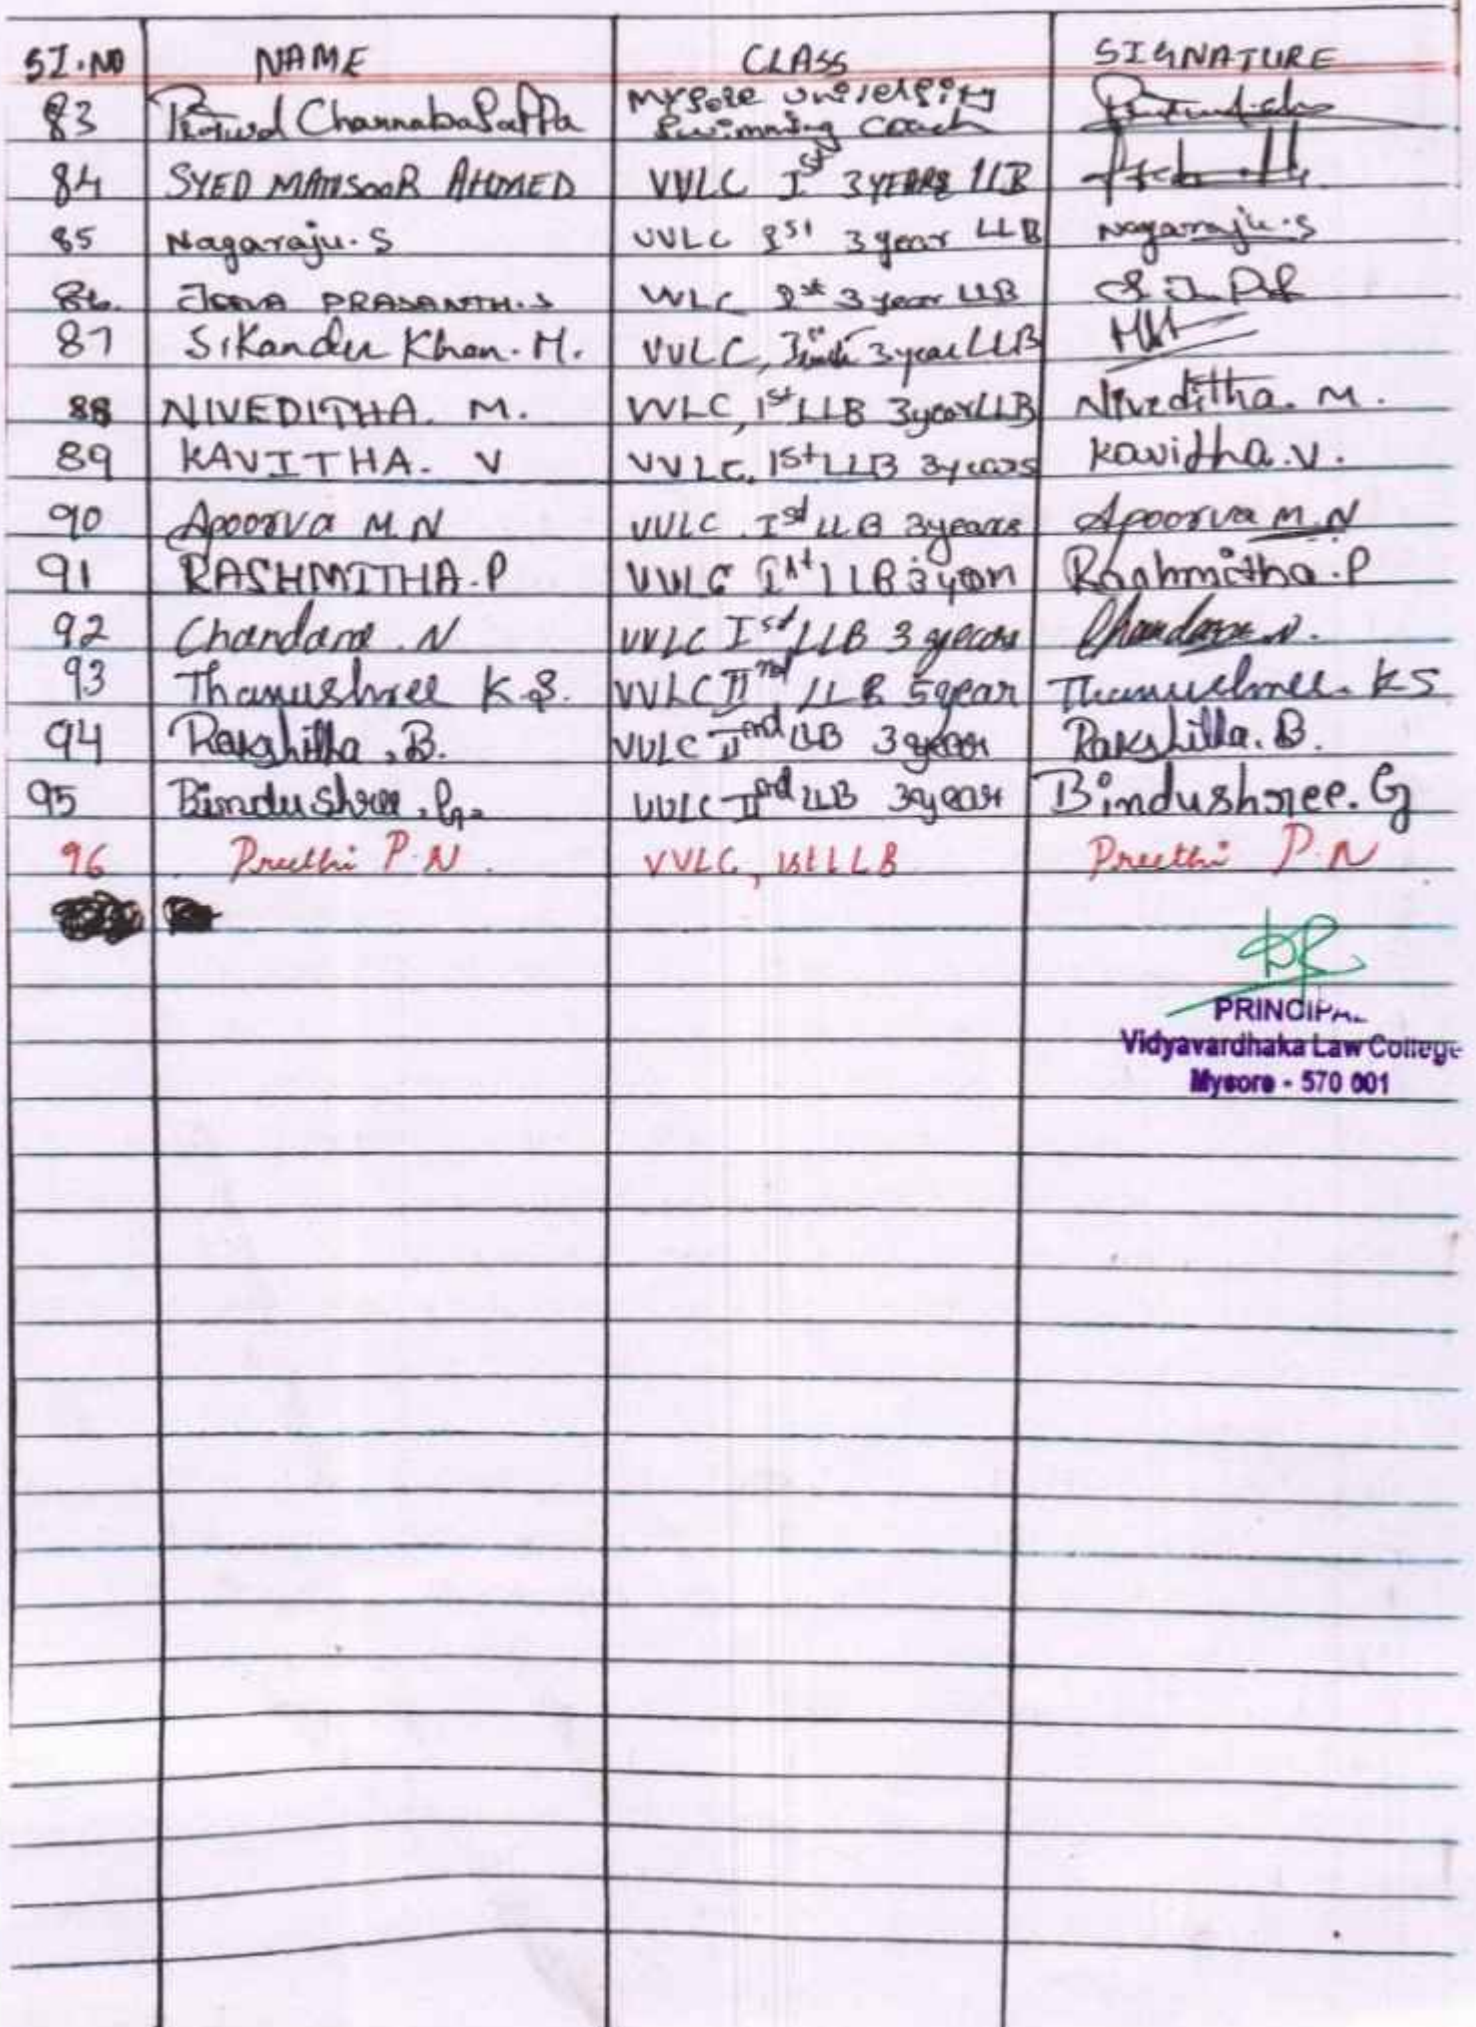 SI.NO NAME CLASS SIGNATURE
83 ChannabaSaPPa Mysore University
Swimming Coach
84 SYED MANSOOR AHMED VVLC Ist 3 YEARS LLB
85 Nagaraju.S VVLC Ist 3 year LLB Nagaraju.S
86. PRASANTH.J VVLC Ist 3 year LLB
87 Sikander Khan. M. VVLC, 3 year LLB
88 NIVEDITHA. M. VVLC, 1st LLB 3year LLB Niveditha. M.
89 KAVITHA. V VVLC, 1st LLB 3years Kavitha.V.
90 Apoorva M.N VVLC. Ist LLB 3years Apoorva M.N
91 RASHMITHA.P VVLC Ist LLB 3 year Rashmitha.P
92 Chandana.N VVLC Ist LLB 3 years Chandana N.
93 Thanushree K.S. VVLC IInd LLB 5year Thanushree. KS
94 Rakshitha.B. VVLC IInd LLB 3 year Rakshitha.B.
95 Bindushree.G. VVLC IInd LLB 3year Bindushree.G
96 Preethi P.N. VVLC, 1st LLB Preethi P.N
PRINCIPAL
Vidyavardhaka Law College
Mysore - 570 001